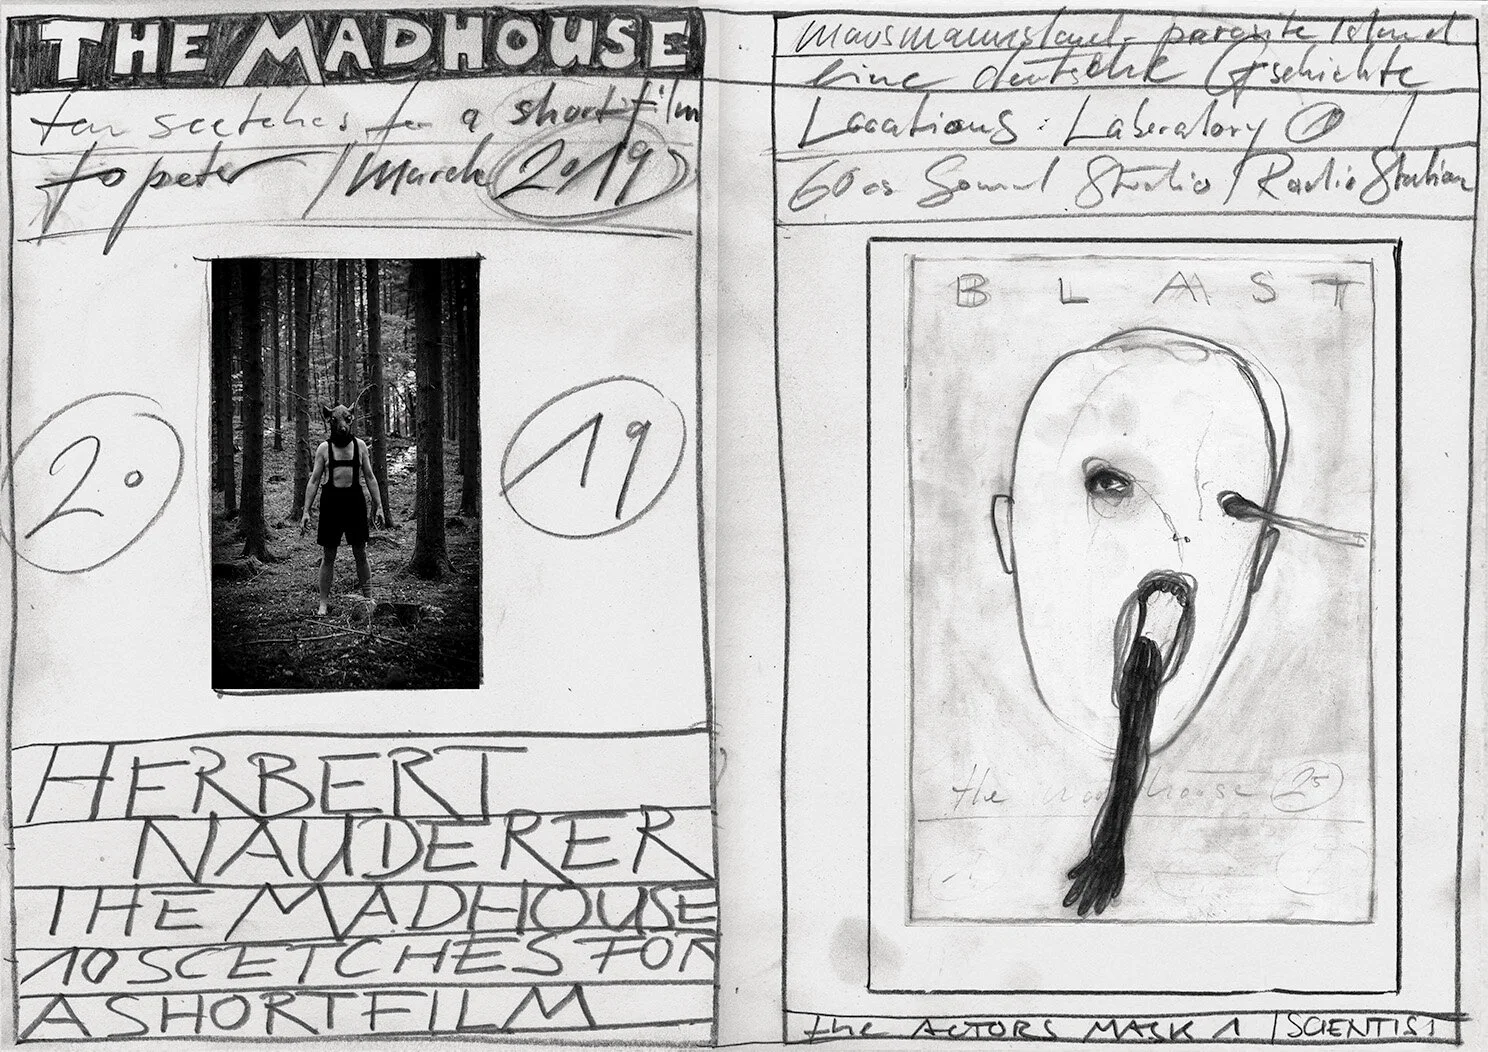 THE MADHOUSE
ten scetches for a shortfilm
to peter / March 2019
20
19
HERBERT
NAUDERER
THE MADHOUSE
10 SCETCHES FOR
A SHORTFILM
mausmannsland - parasite Island
eine deutsche Geschichte
Locations: Laboratory 1 /
60es Sound Studio / Radio Station
BLAST
the madhouse 25
the ACTORS MASK 1 / SCIENTIST